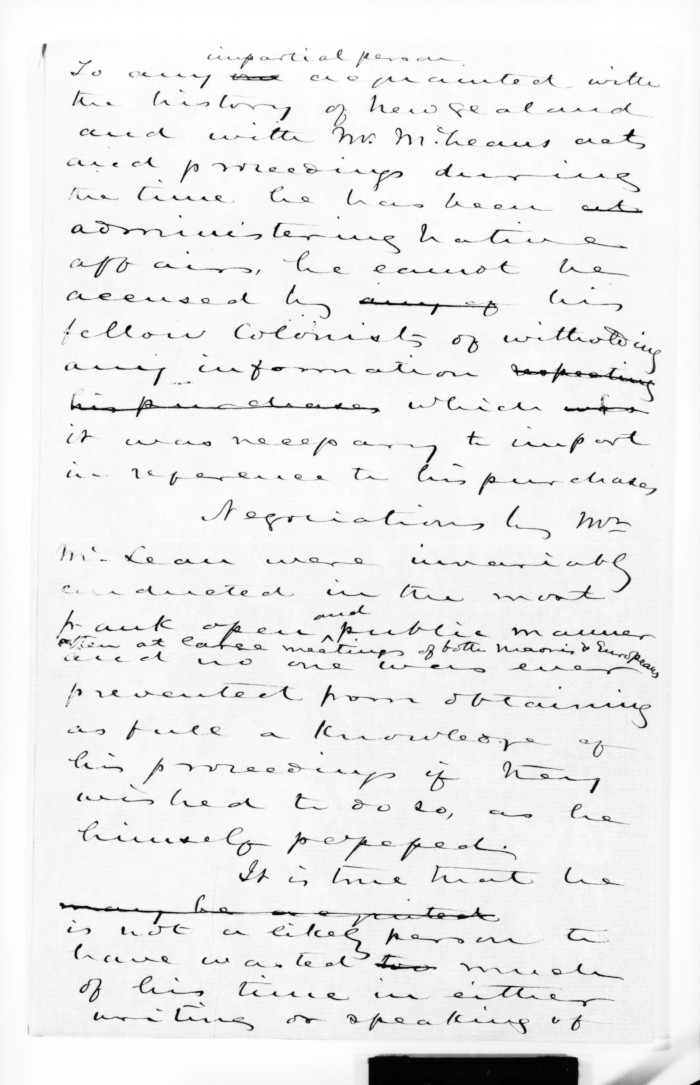 impartial person
To any one acquainted with
the history of New Zealand
and with Mr. McLeans acts
and proceedings during
the time he has been
administering Native
affairs, he cannot be
accused by any of his
fellow Colonists of witholding
any information respecting
his purchases which was
it was necessary to impart
in reference to his purchases
Negociations by Mr
McLean were invariably
conducted in the most
frank open and public manner
often at large meetings of both Maoris & Europeans
and no one was ever
prevented from obtaining
as full a knowledge of
his proceedings if they
wished to do so, as he
himself possessed.
It is true that he
may be
is not a likely person to
have wasted too much
of his time in either
writing or speaking of